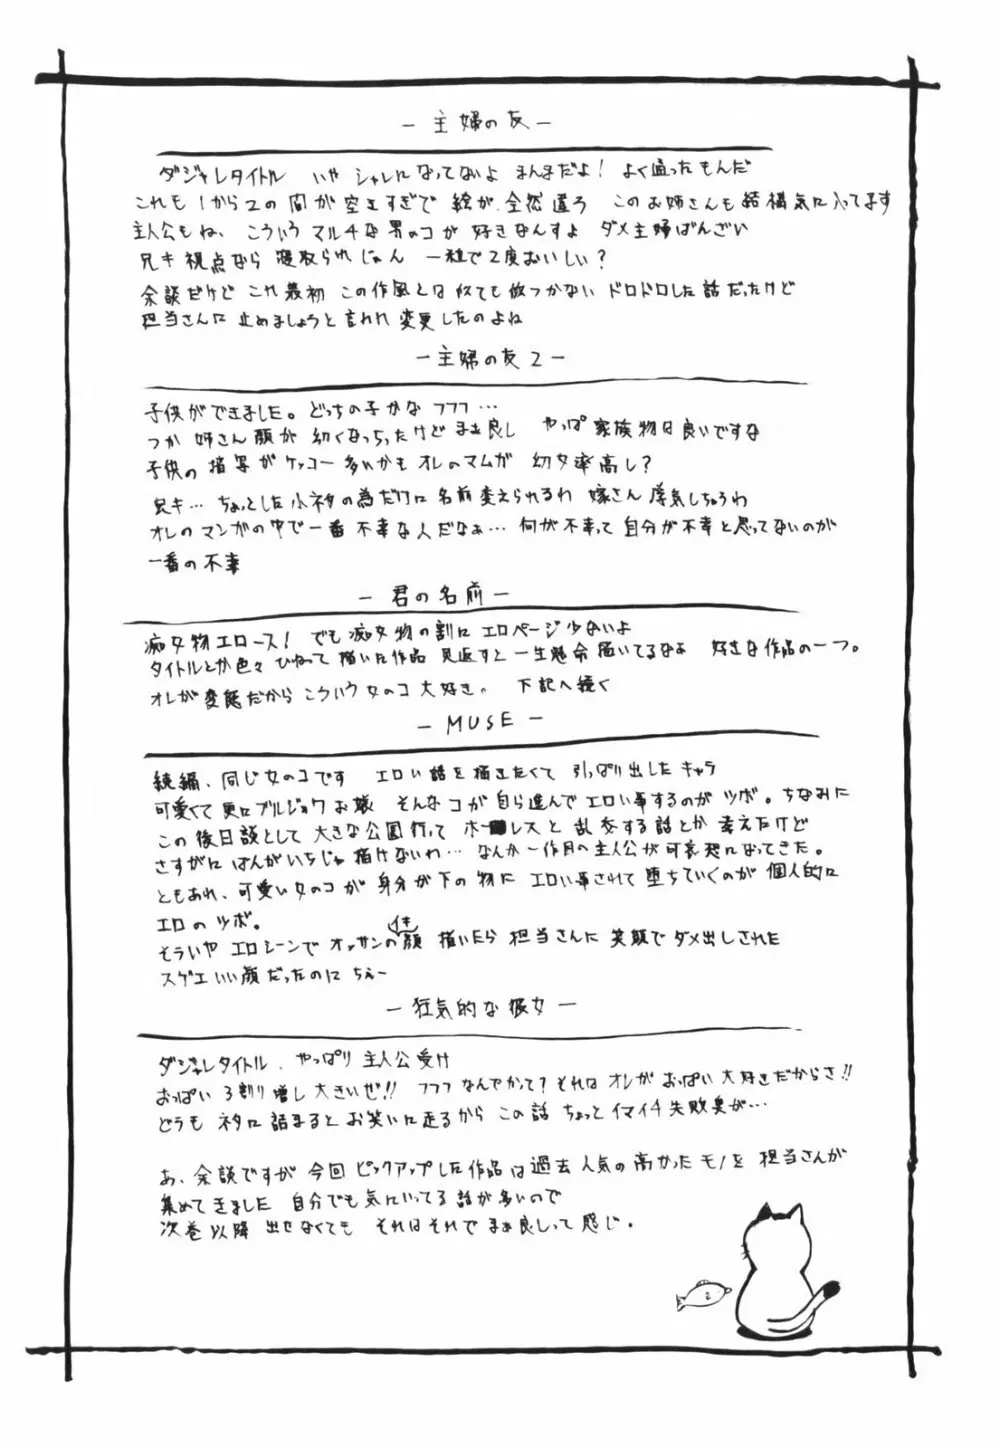 － 主婦の友 －
ダジャレタイトル いや シャレになってないよ まんまだよ！ よく通ったもんだ
これも１から２の間が空きすぎで 絵が全然違う このお姉さんも結構気に入ってます
主人公もね、こういうマルチな男のコが好きなんすよ ダメ主婦ばんざい
兄キ視点なら 寝取られじゃん 一粒で２度おいしい？
余談だけど これ最初 この作風とは似ても似つかない ドロドロした話だったけど
担当さんに止めましょうと言われ変更したのよね
－主婦の友２－
子供ができました。どっちの子かな フフフ…
つか 姉さん顔が 幼くなっちったけど まぁ良し やっぱ家族物は良いですな
子供の描写がケッコー多いかも オレのマムガ 幼女率高し？
兄キ… ちょっとした小ネタの為だけに名前変えられるわ 嫁さん浮気しちゃうわ
オレのマンガの中で一番不幸な人だなぁ… 何が不幸って自分が不幸と思ってないのが
一番の不幸
－ 君の名前 －
痴女物エロース！ でも痴女物の割に エロページ少ないよ
タイトルとか色々ひねって描いた作品 見返すと一生懸命描いてるなよ 好きな作品の一つ。
オレが変態だからこういう女のコ大好き。 下記へ続く
－ MUSE －
続編、同じ女のコです エロい話を描きたくて 引っぱり出したキャラ
可愛くて更にブルジョワお嬢 そんなコが自ら進んでエロい事するのがツボ。ちなみに
この後日談として 大きな公園行って ホームレスと乱交する話とか考えたけど
さすがに はんがいちじゃ描けないわ… なんか一作目の主人公が可哀想になってきた。
ともあれ、可愛い女のコが 身分が下の物に エロい事されて堕ちていくのが 個人的に
エロのツボ。
そういや エロシーンで オッサンのイキ顔 描いたら 担当さんに 笑顔で ダメ出しされた
スゲエいい顔だったのに ちぇー
－狂気的な彼女 －
ダジャレタイトル、やっぱり 主人公受け
おっぱい ３割り増し 大きいぜ!! フフフ なんでかって？それは オレが おっぱい 大好きだからさ!!
どうも ネタに詰まると お笑いに走るから この話 ちょっと イマイチ 失敗臭が…
あ、余談ですが 今回 ピックアップした作品は過去 人気の高かったモノを 担当さんが
集めてきました 自分でも気にいってる話が多いので
次巻以降 出せなくても それはそれで まぁ良しって感じ。